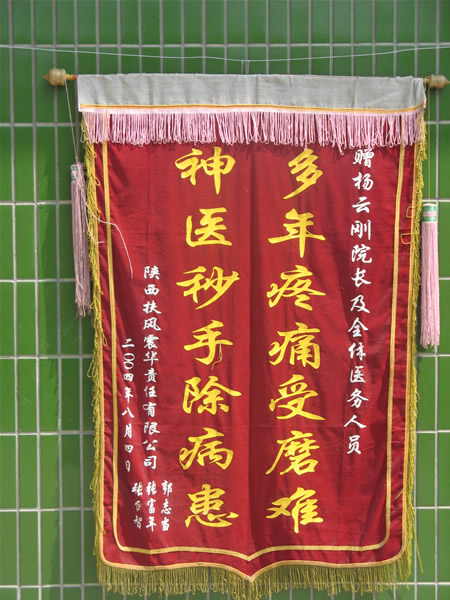 赠杨云刚院长及全体医务人员
多年疼痛受磨难
神医秒手除病患
陕西扶风震华责任有限公司
郭志岩
张富年
二〇〇四年八月四日